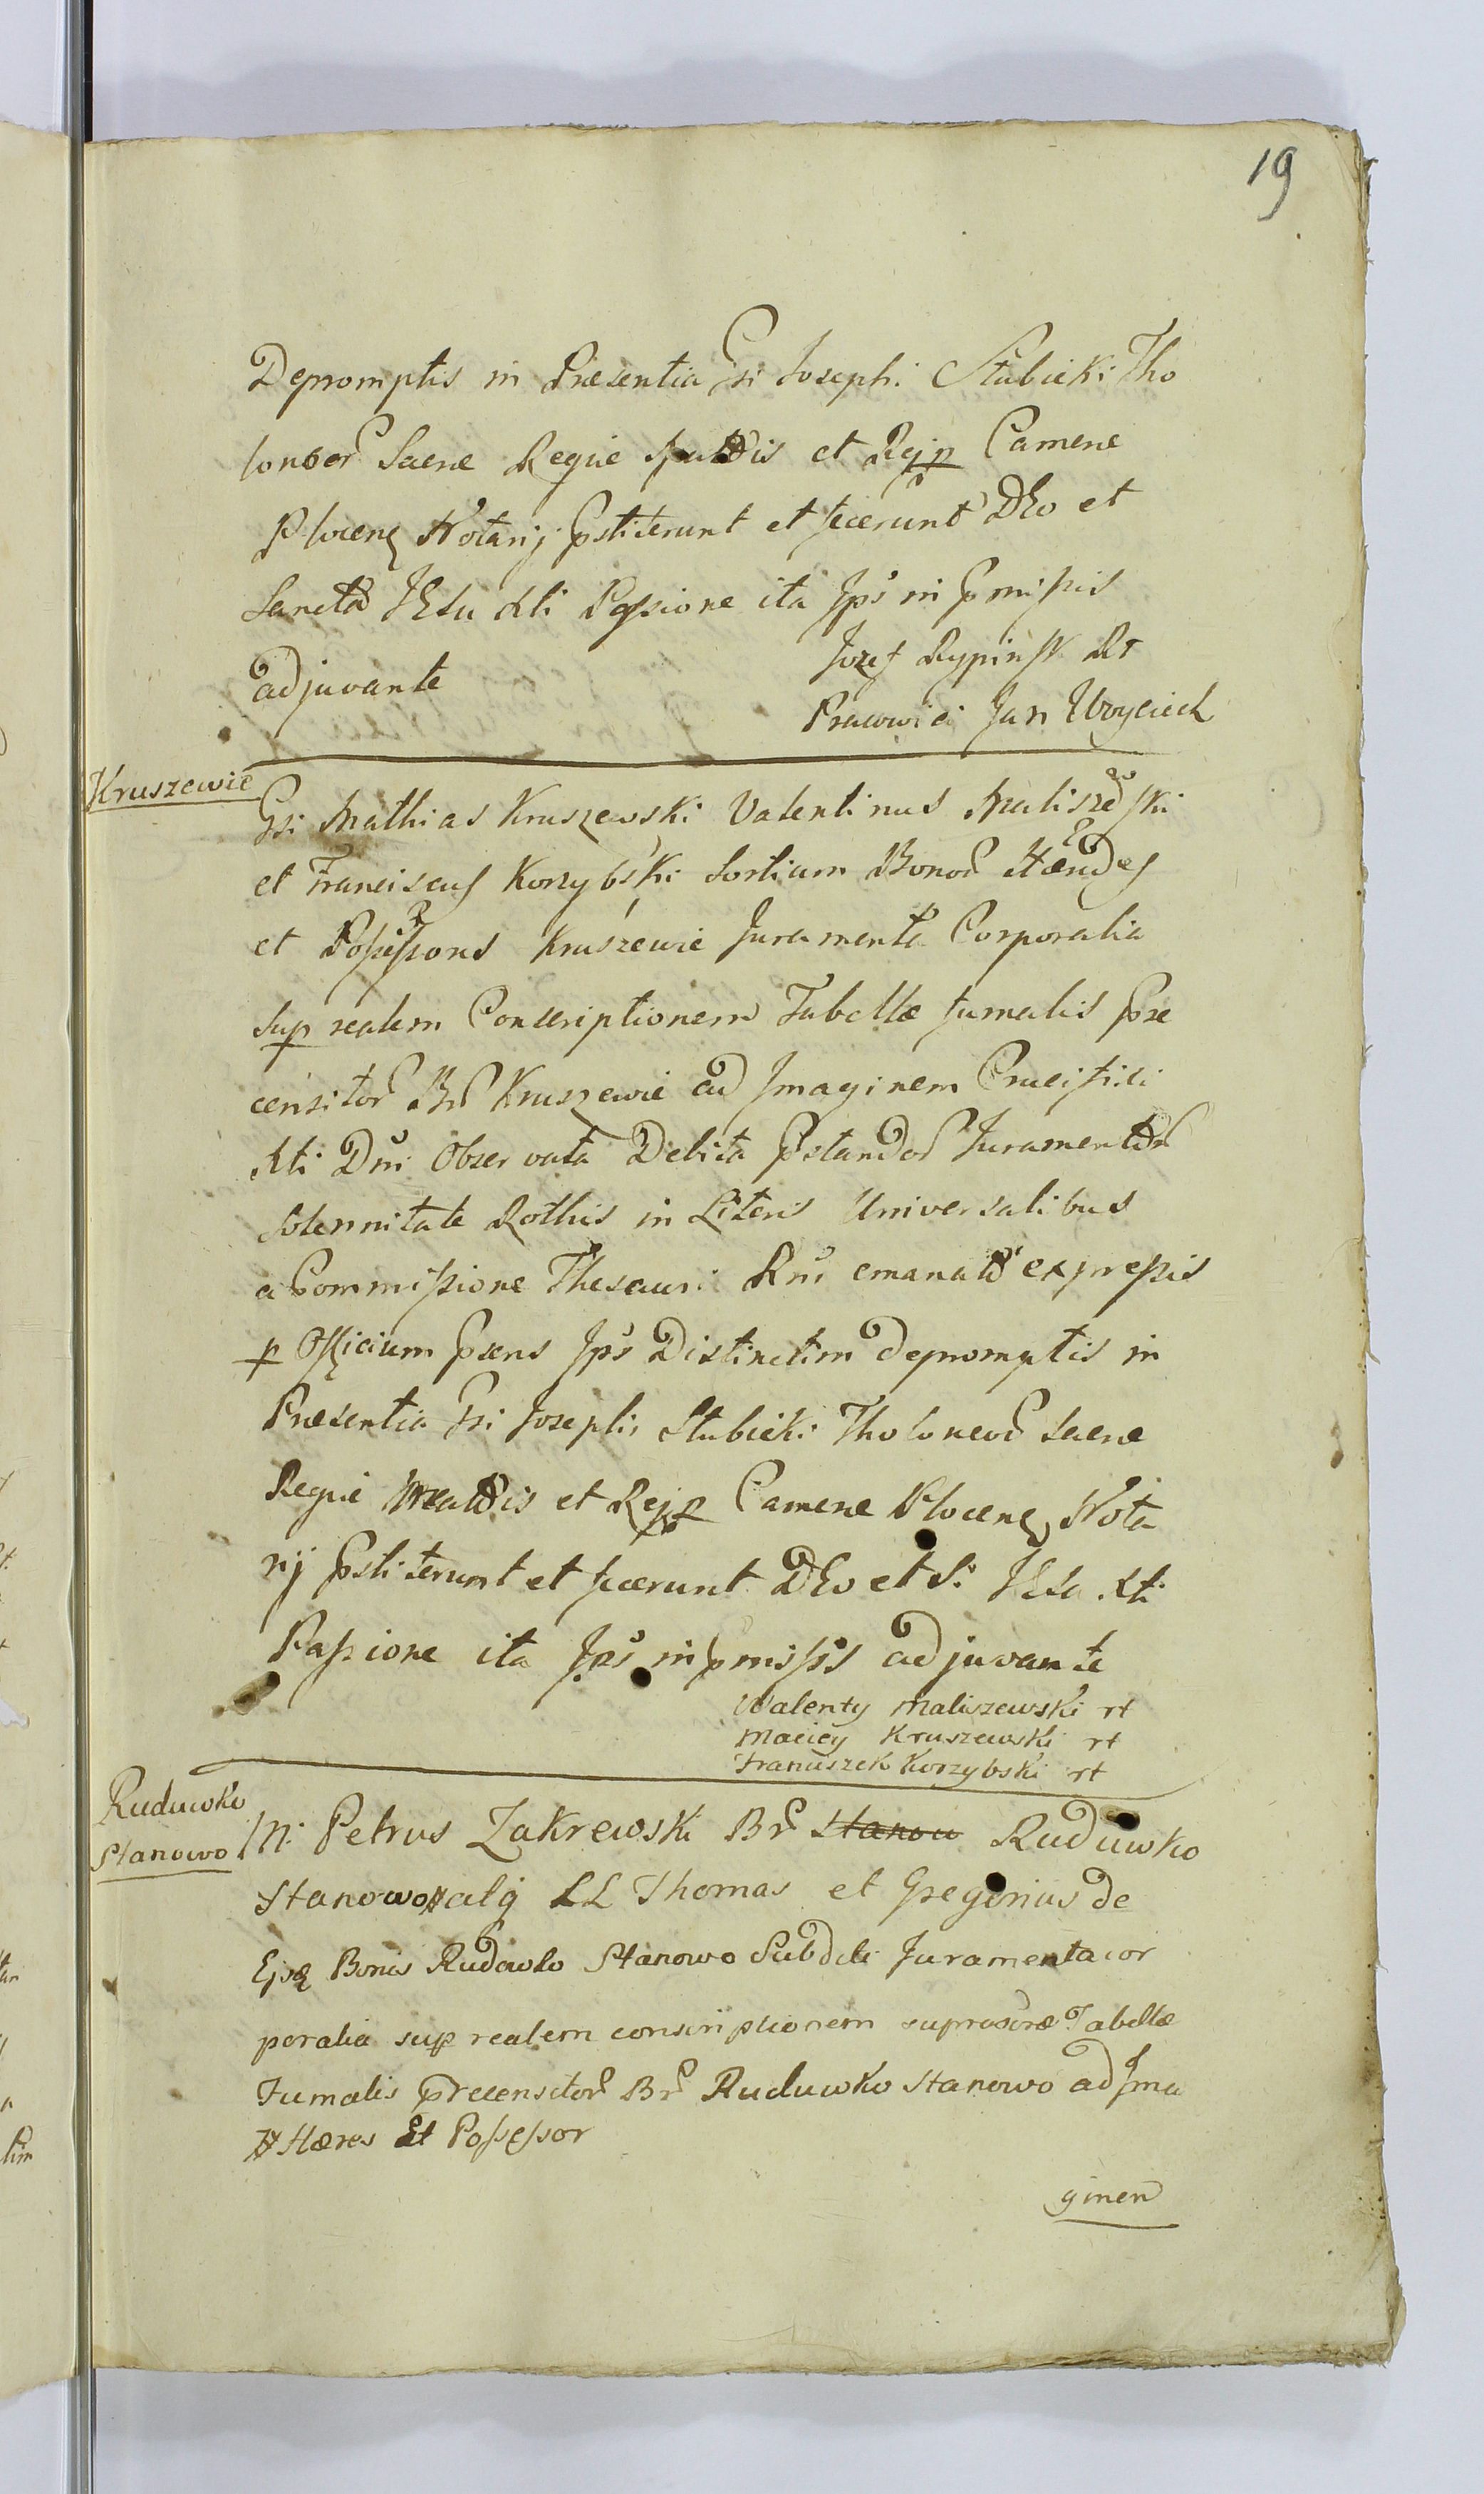 19
Depromptis in Præsentia Gsi Josephi Stubicki Tho
loneor Sacræ Regiæ Mattis et Reip Cameræ
Plocens Notarij pstiterunt et fecerunt DEo et
Sancta JESu Xti Passione ita Jps in pmissis
adjuvante
Jozef Rypinsk Rt
Jan Woyciech
Kruszewie
Gsi Mathias Kruszewski Valentinus Maliszewski
et Franciscus Korzybski Sortium Bonor Hæredes
et Possessores Kruszewie Juramenta Corporalia
Sup realem Conscriptionem Tabellæ fumalis præ
censitor Br Kruszewie ad Jmaginem Crucifixi
Xti Dni Observata Debita pstandor Juramentor
Solennitate Rothis in Literis Universalibus
a Commissione Thesauri Rni emanat expressis
p Officium psens Jps Distinctim depromptis in
Præsentia Gsi Josephi Stubicki Tholoneor Sacræ
Regiæ Mattis et Reip Cameræ Plocens Nota
rij pstiterunt et fecerunt DEo et S. JESu Xti
Passione ita Jps in pmissis adjuvante
Walenty Maliszewski rt
Maciey Kruszewski rt
Franciszek Korzybski rt
Ruduwko
Stanowo
Petrus Zakrewski Br Stanow Ruduwko
Stanowo # alq LL Thomas et Gregorius de
Ejsq Bonis Rudowko Stanowo Subditi Juramenta cor
poralia sup realem conscriptionem Tabellæ
Fumalis præcensitor Br Ruduwko Stanowo ad Jma
# Hæres Et Possessor
ginem